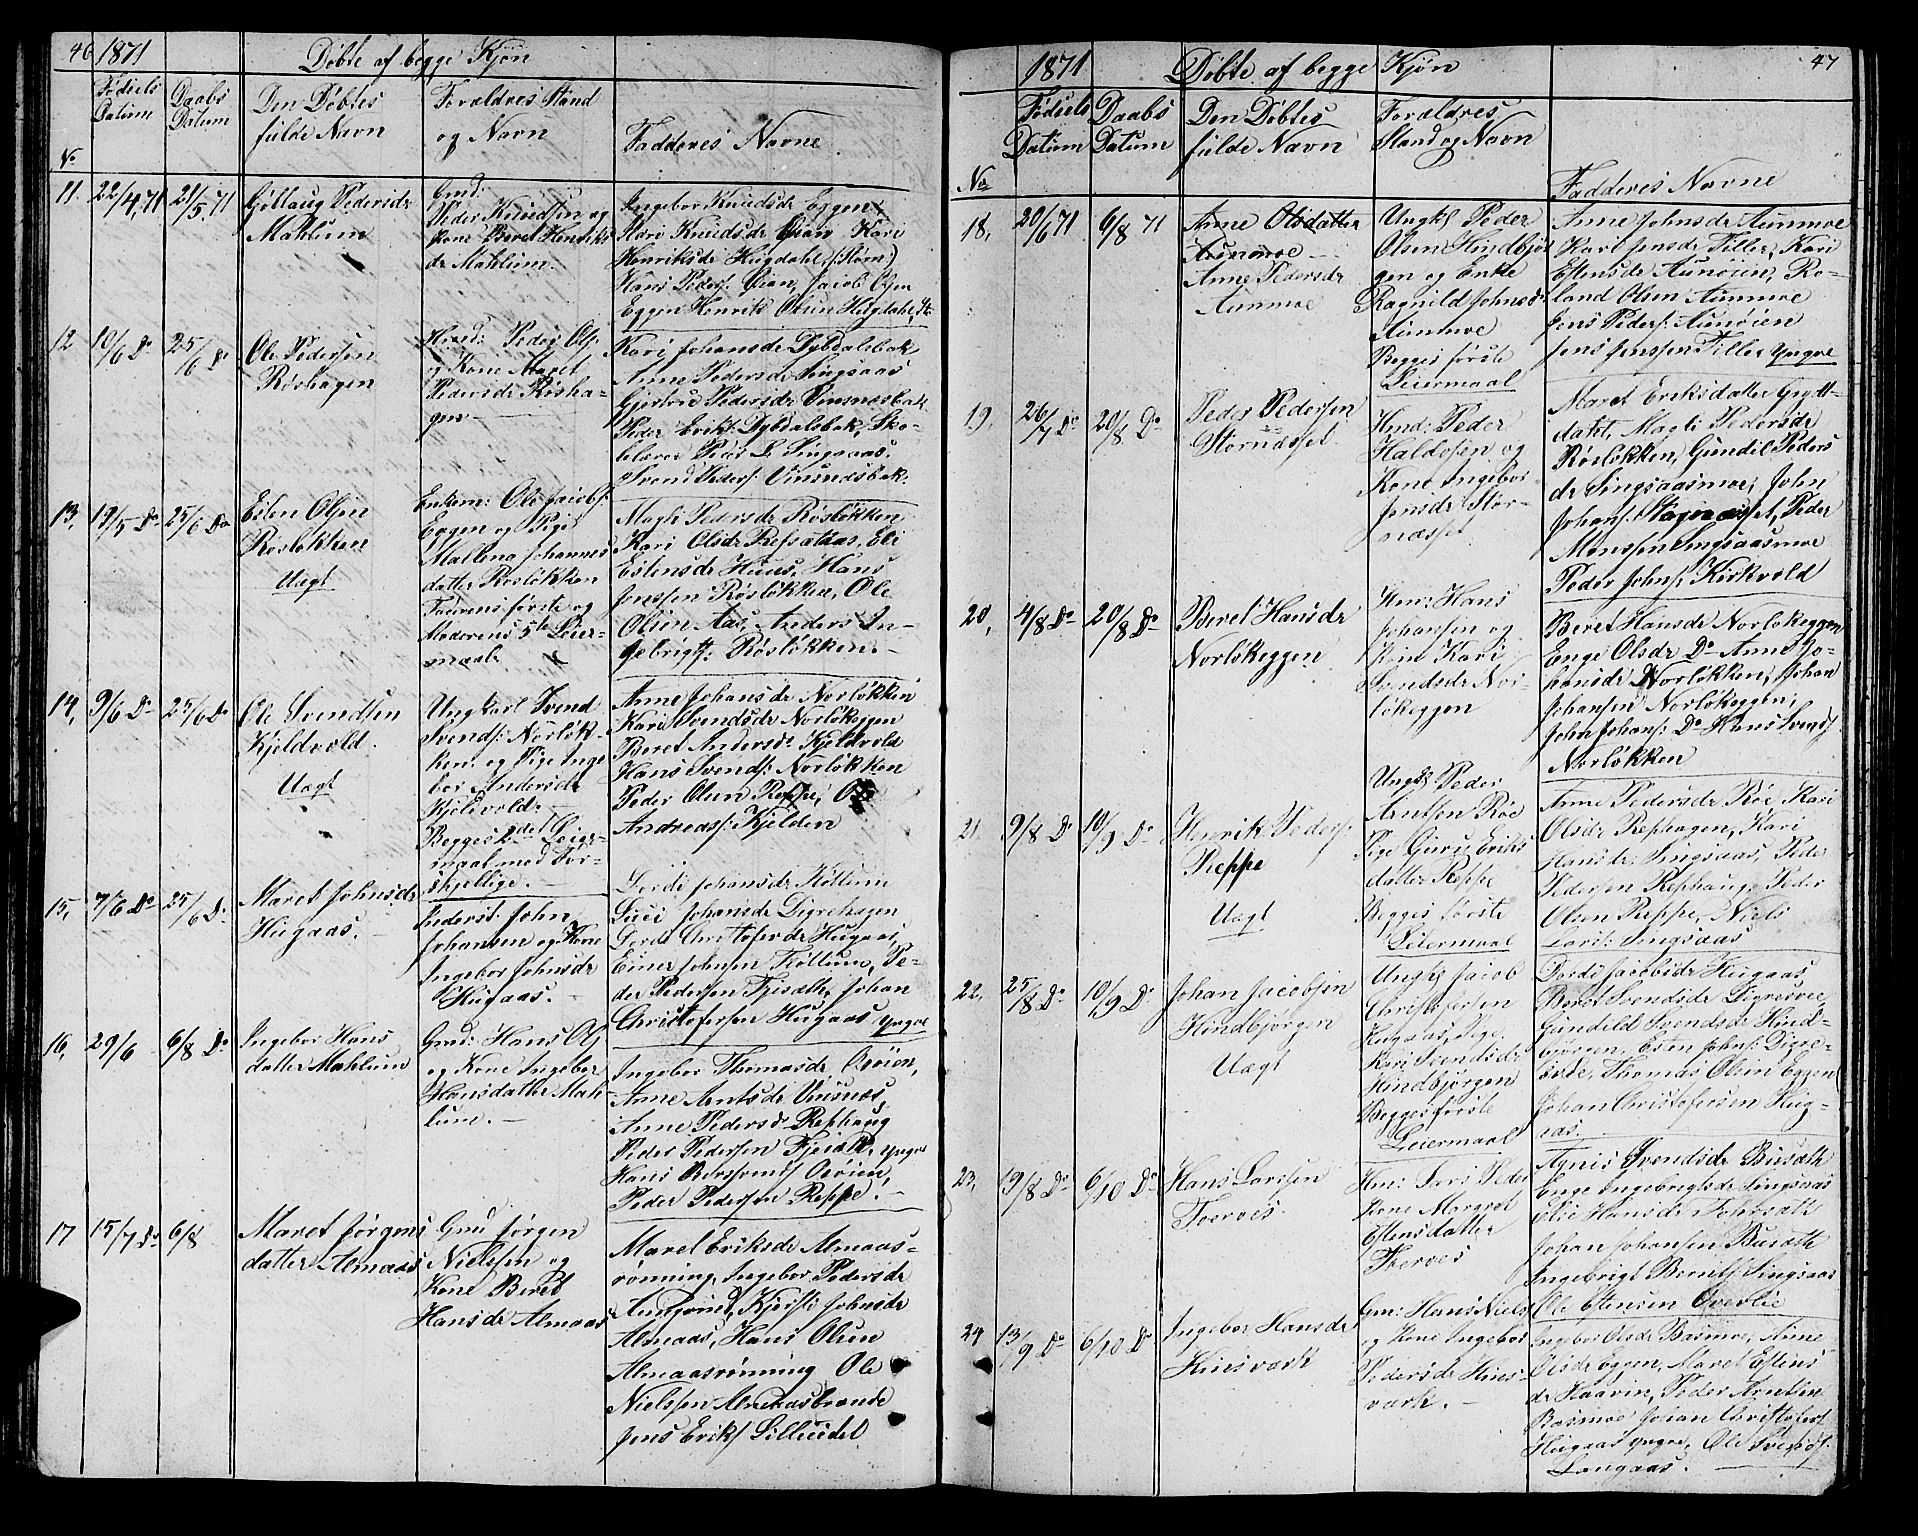 46 1871 Døbte af begge Kjøn
Fødsels Datum
Daabs Datum
Den Døbtes fulde Navn
Forældres Stand og Navn
Faddernes Navne
No
11. 22/4 71 21/5 71
Gollaug Pedersdr
Mahlum
Gmd:
Peder Knudsen og
Kone Beret Henriks
dr Mahlum.
Ingebor Knudsdr Eggen
Mari Knudsdr Øian Kari
Henriksdr Hugdahl, (Støren)
Hans Peders. Øian, Jacob Olsen
Eggen Henrik Olsen Hugdahl,
12 10/6 Do 25/6 Do
Ole Pedersen
Røshagen
Huusd: Peder Ols.
og Kone Maret
Pedersdr Røsha-
gen
Kari Johansdr Dybdalsbak
Anne Pedersdr Singsaas
Gjertru Pedersdr Vinsnesbak
Peder Eriks: Dybdalsbak, Sko-
lelærer Peder L. Singsaas.
Svend Peders: Vinsnesbak.
13, 19/5 Do 25/6 Do
Esten Olsen
Røsløkken
Uægt
Enkem: Ole Jacobs:
Eggen og Pige
Mallena Johannes
datter Røsløkken
Faderens første og
Moderens 5te Leier-
maal.
Magli Pedersdr Røsløkken
Kari Olsdr Refsætaas, Eli
Estensdr Huus, Hans
Jonssen Røsløkken, Ole
Olsen Aas, Anders In-
gebrigts: Røsløkken.
14, 9/6 Do 25/6 Do
Ole Svendsen
Kjeldvold.
Uægt
Ungkarl Svend
Svends: Norløk-
ken. og Pige Inge
bor Andersdr
Kjeldvold.
Begges 2det Leier-
maal med For-
skjellige.
Anne Johansdr Norløkken
Kari Svendsdr Norløkeggen
Beret Andersdr Kjeldvold
Hans Svends: Norløkken
Peder Olsen Reppe,
Andreas: Kjelden
15, 7/6 Do 25/6 Do
Maret Johnsdr
Hugaas.
Inderst: John
Johansen og Kone
Ingebor Johnsdr
Hugaas.
Dordi Johansdr Køllum
Luci Johansdr Digrehagen
Dordi Christofersdr Hugaas,
Einer Johnsen Køllum, Pe-
der Pedersen Fjesæth, Johan
Christofersen Hugaas yngre
16, 29/6 6/8 Do
Ingebor Hans
datter Mahlum
Gmd: Hans Ols
og Kone Ingebor
Hansdatter Mah
lum.
Ingebor Thomasdr Orøien,
Anne Arntsdr Vinsnes,
Anne Pedersdr Rephaug
Peder Pedersen Fjesæth yngre
Hans Orøien,
Peder Pedersen Reppe.
17 15/7 Do 6/8
Maret Jørgens
datter Almaas
Gmd Jørgen
Nielsen og
Kone Beret
Hansdr Almaas
Maret Eriksdr Almaas-
rønning, Ingebor Pedersdr
Aungrind, Kjersti Johnsdr
Almaas, Hans Olsen
Almaasrønning Ole
Nielsen Almaasbrænde
Jens Eriks Lilleudel
1871 Døbte af begge Kjøn 47
Fødsels Datum
Daabs Datum
Den Døbtes fulde Navn
Forældres Stand og Navn
Faddernes Navne
No
18, 20/6 71 6/8 71
Anne Olsdatter
Aunmoe
Anne Pedersdr
Aunmoe
Ungk. Peder
Olsen Hindbjør
gen og Enke
Ragnild Johnsdr
Aunmoe
Begges første
Leiermaal
Anne Johnsdr Aunmoe
Kari Jensdr Tiller, Kari
Estensdr Aunøien, Ro-
land Olsen Aunmoe
Jens Peders: Aunøien
Jens Jenssen Tiller yngre
19, 26/7 Do 20/8 Do
Peder Pedersen
Stornæsset.
Hmd: Peder
Haldosen og
Kone Ingebor
Jonsdr Stor-
næsset
Maret Eriksdatter Grytt-
dalet, Magli Pedersdr
Røsløkken, Gundil Peders
dr Singsaasmoe, John
Johans: Vagnæsset, Peder
Monssen Singsaasmoe
Peder Johns: Kirkvold
20, 4/8 Do 20/8 Do
Beret Hansdr
Norløkeggen
Hm: Hans
Johansen og
Kone Kari
Svendsdr Nor-
løkeggen
Beret Hansdr Norløkeggen
Enge Olsdr Do Anne Jo-
hansdr Norløkken, Johan
Johansen Norløkeggen,
John Johans: Do Hans Svends
Norløkken
21, 9/8 Do 10/9 Do
Henrik Peders:
Reppe
Uægt
Ungk. Peder
Arntsen Røe
Pige Guru Eriks
datter Reppe
Begges første
Leiermaal
Anne Pedersdr Røe Kari
Olsdr Rephagen, Kari
Hansdr Singsaas, Peder
Pedersen Rephaug, Peder
Olsen Reppe, Niels
Lars: Singsaas
22, 25/8 Do 10/9 Do
Johan Jacobsen
Hindbjørgen
Uægt
Ungk. Jacob
Christofersen
Hugaas, Pige
Kari Svendsdr
Hindbjørgen
Begges første
Leiermaal
Dordi Jacobsdr Hugaas
Beret Svendsdr Digresvee,
Gundild Svendsdr Hind-
bjørgen, Esten Johns: Digre-
Thomas Olsen Eggen
Johan Christofersen Hug-
aas.
23, 19/8 Do 6/10 Do
Hans Larssen
Foervoes
Hm: Lars Peder
Kone Margret
Estensdatter
Foervoes
Agnis Svendsdr Busæth
Enge Ingebrigtsdr Singsaas
Elie Hansdr Fohrsæth
Johan Johansen Busæth
Ingebrigt Bernts: Singsaas
Ole Estensen Øverlie
24 13/9 Do 6/10 Do
Ingebor Hansdr
Kinsværk
Gm: Hans Niels
og Kone Ingebor
Pedersdr Kins-
værk.
Ingebor Olsdr Basmoe, Anne
Olsdr Eggen, Maret Estens
dr Haavin, Peder Arntsen
Basmoe Johan Christofers
Hugaas yngre, Ole Svends:
Langaas.